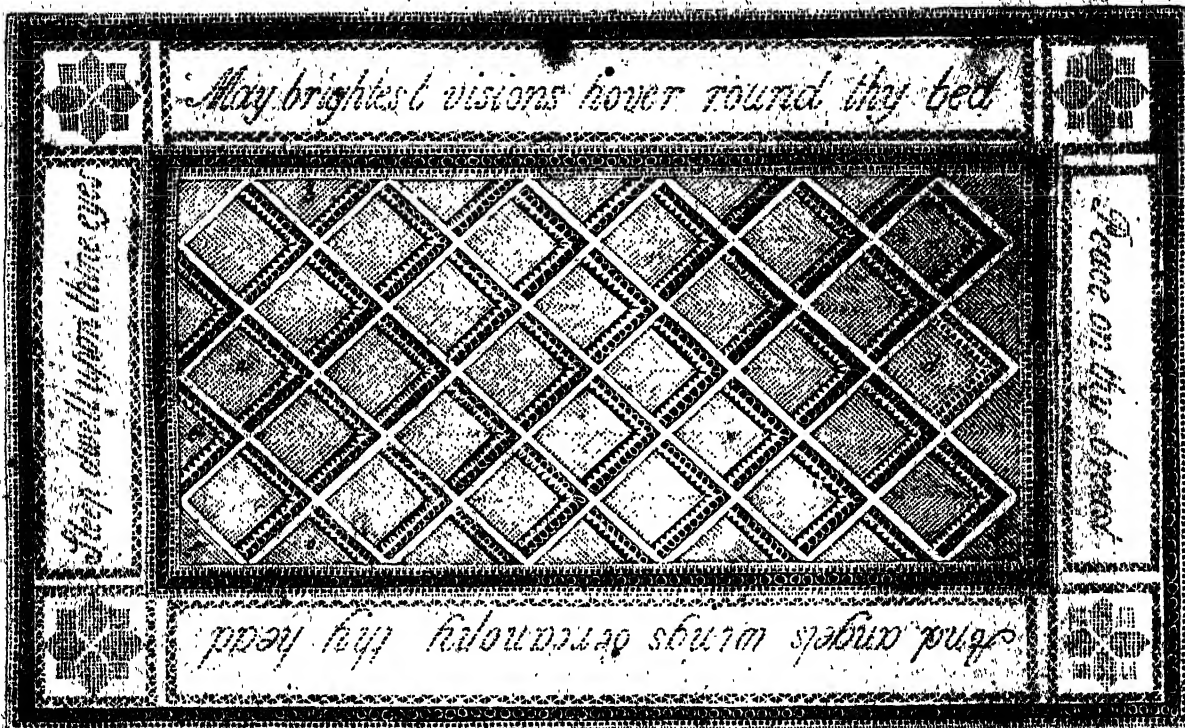 May brightest visions hover round thy bed
Peace on thy breast
And angels wings o'ercanopy thy head
Sleep dwell upon thine eyes